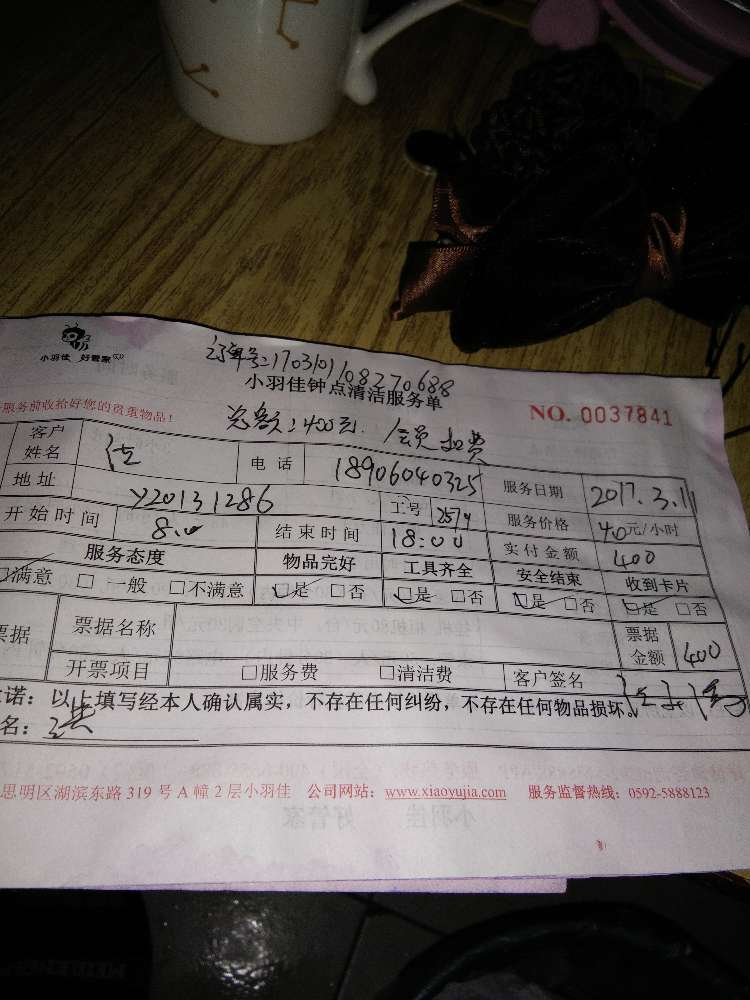 小羽佳 好管家
订单号:170310108270688
小羽佳钟点清洁服务单
NO. 0037841
服务前收拾好您的贵重物品!
总额:400元. 会员扣费
客户姓名 电话 18906040325 服务日期 2017.3.11
地址 Y20131286 工号 服务价格 40元/小时
开始时间 8:00 结束时间 18:00 实付金额 400
服务态度 物品完好 工具齐全 安全结束 收到卡片
□满意 □一般 □不满意 □是 □否 □是 □否 □是 □否 □是 □否
票据 票据名称 票据金额 400
开票项目 □服务费 □清洁费 客户签名
诺:以上填写经本人确认属实,不存在任何纠纷,不存在任何物品损坏。
名:
思明区湖滨东路 319 号 A 幢 2 层小羽佳 公司网站:www.xiaoyujia.com 服务监督热线:0592-5888123